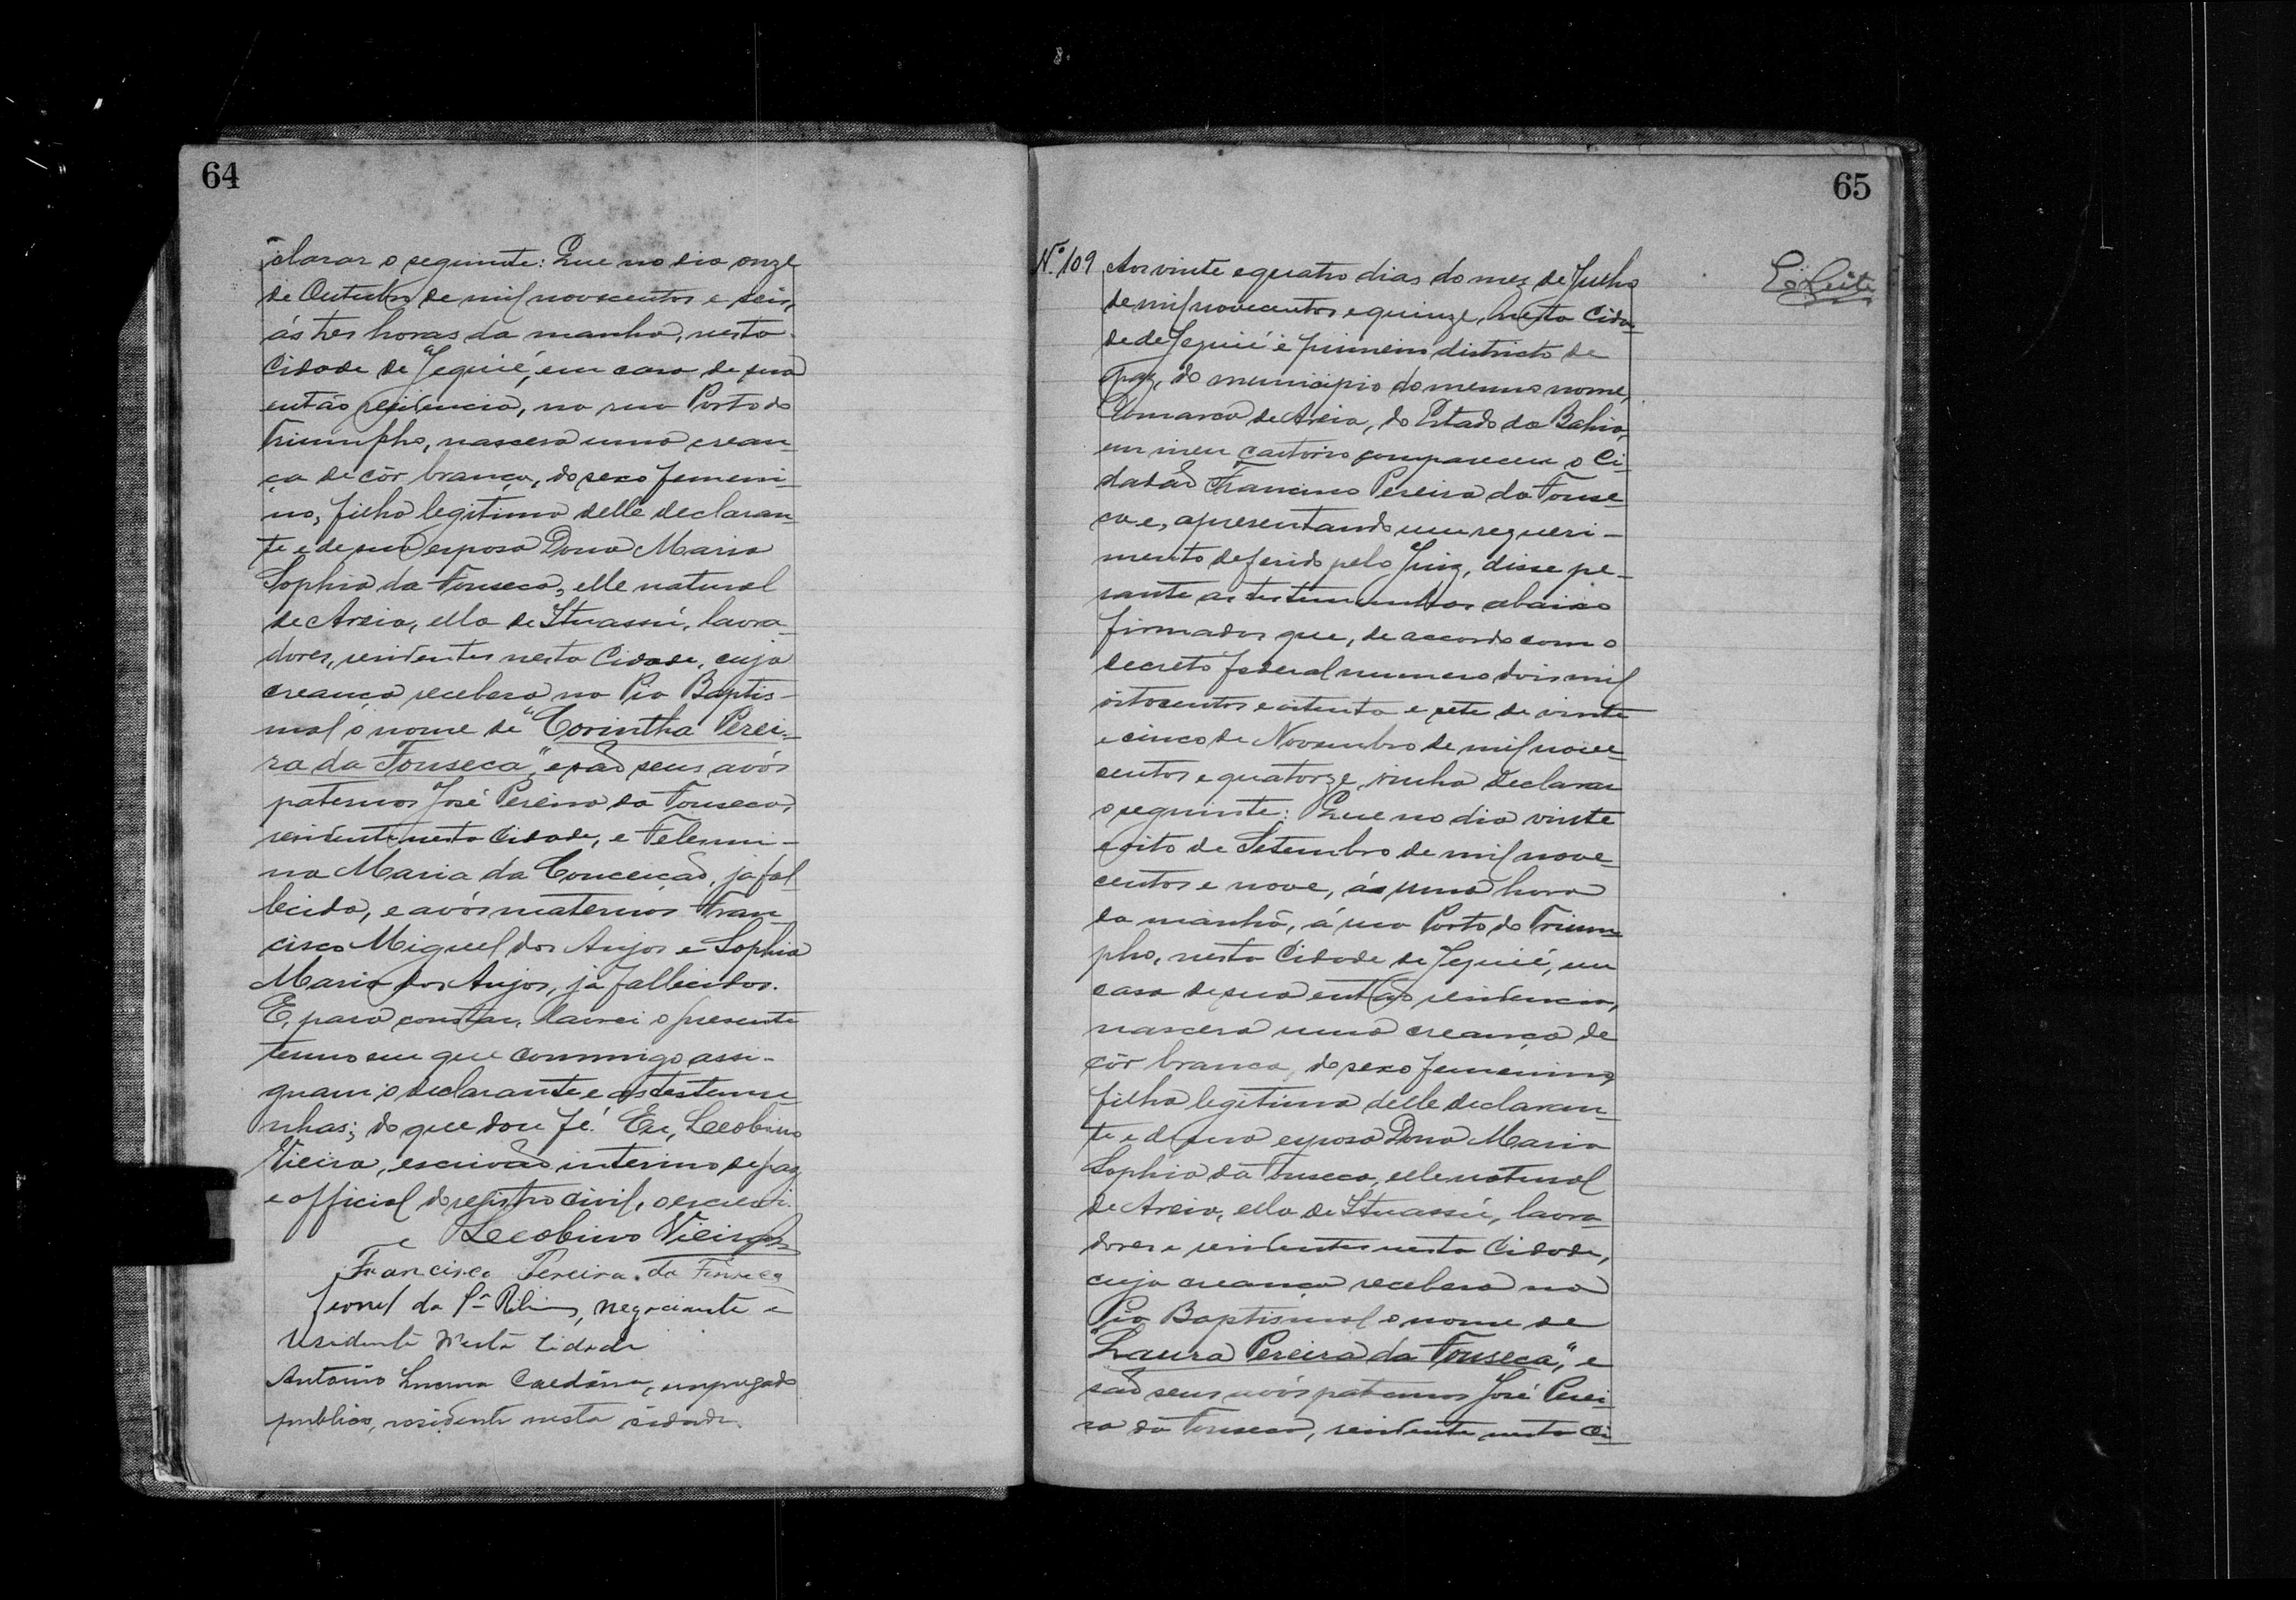 64
clarar o seguinte: Que no dia onze
de Outubro de mil novecentos e seis,
ás tres horas da manhã, nesta
Cidade de Jequié, em casa de sua
então residencia, na rua Porto do
Triumpho, nascera uma crean-
ça de côr branca, do sexo femeni-
no, filha legitima delle declaran-
te e de sua esposa Dona Maria
Sophia da Fonseca, elle natural
de Areia, ella de Ituassú, lavra-
dores, residentes nesta Cidade, cuja
creança recebera na Pia Baptis-
mal o nome de "Corintha Perei-
ra da Fonseca", e são seus avós
paternos José Pereira da Fonseca,
residente nesta Cidade, e Felesmi-
na Maria da Conceição, já fal-
lecida, e avós maternos Fran-
cisco Miguel dos Anjos e Sophia
Maria dos Anjos, já fallecidos.
E, para constar, lavrei o presente
termo em que commigo assi-
gnam o declarante e as testemu-
nhas; do que dou fé. Eu, Leobino
Vieira, escrivão interino de paz
e official do registro civil, o escrevi.
Leobino Vieira
Francisco Pereira da Fonseca
Leonel da Sª Ribº, negociante e
residente nesta cidade
Antonio Lucena Caldeira, empregado
publico, residente nesta cidade.
65
Nº 109
E. Leite
Aos vinte e quatro dias do mez de Julho
de mil novecentos e quinze, nesta Cida-
de de Jequié e primeiro districto de
paz, do municipio do mesmo nome,
Comarca de Areia, do Estado da Bahia,
em meu cartorio compareceu o Ci-
dadão Francisco Pereira da Fonse-
ca e, apresentando um requeri-
mento deferido pelo Juiz, disse pe-
rante as testemunhas abaixo
firmadas que, de accordo com o
decreto federal numero dois mil
oitocentos e oitenta e sete de vinte
e cinco de Novembro de mil nove-
centos e quatorze, vinha declarar
o seguinte: Que no dia vinte
e oito de Setembro de mil nove-
centos e nove, á uma hora
da manhã, á rua Porto do Trium-
pho, nesta Cidade de Jequié, em
casa de sua então residencia,
nascera uma creança de
côr branca, do sexo femenino,
filha legitima delle declaran-
te e de sua esposa Dona Maria
Sophia da Fonseca, elle natural
de Areia, ella de Ituassú, lavra-
dores e residentes nesta Cidade,
cuja creança recebera na
Pia Baptismal o nome de
"Laura Pereira da Fonseca", e
são seus avós paternos José Perei-
ra da Fonseca, residente nesta Ci-